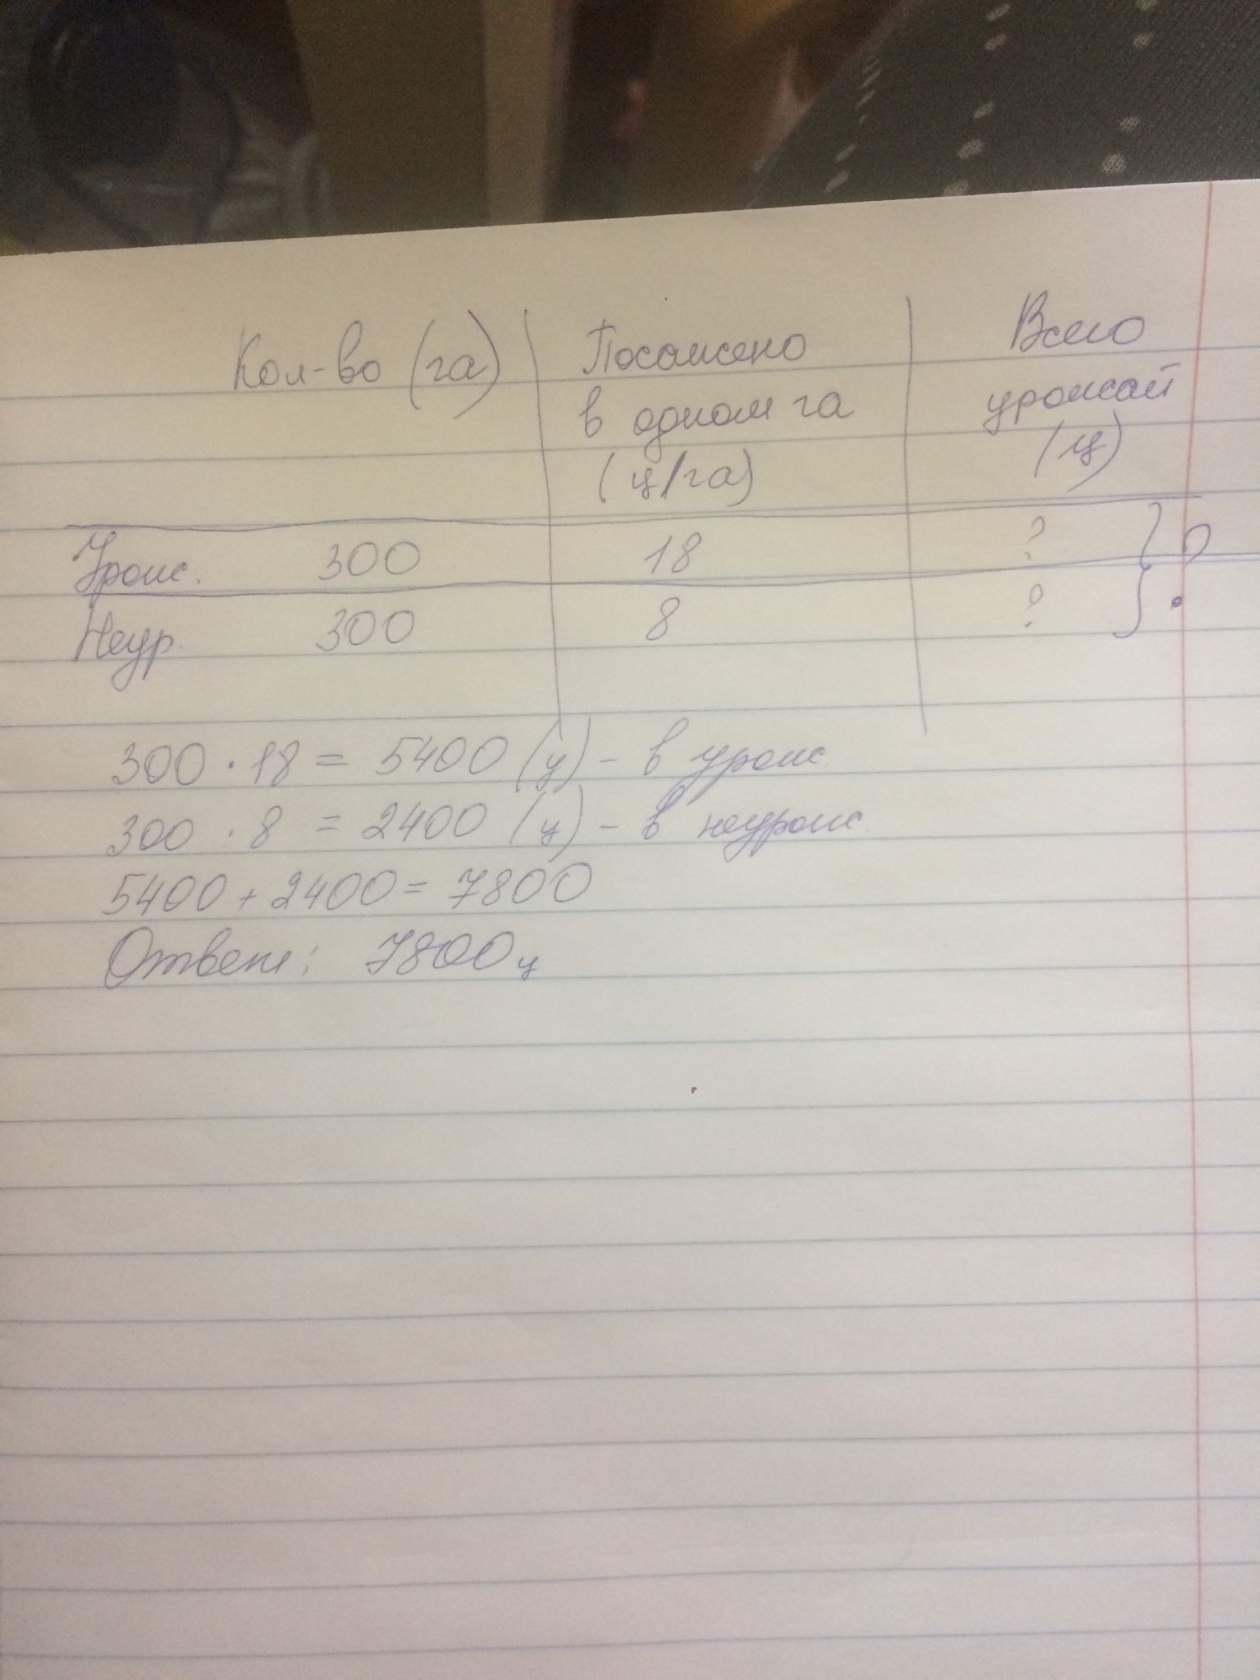 Кол-во (га) Посажено Всего
в одном га урожай
(ц/га) (ц)
Урож. 300 18 ? } ?
Неур. 300 8 ?
300 · 18 = 5400 (ц) - в урож.
300 · 8 = 2400 (ц) - в неурож.
5400 + 2400 = 7800
Ответ: 7800 ц